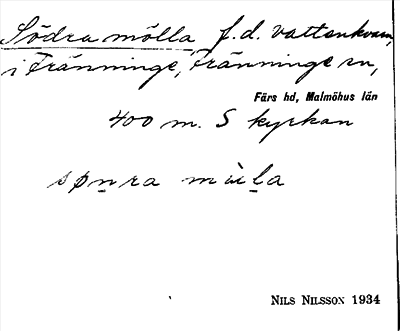 Södra mölla f.d. vattenkvarn,
i Tränninge, Tränninge sn,
Färs hd, Malmöhus län
400 m. S kyrkan
spṉra mùḻa
NILS NILSSON 1934